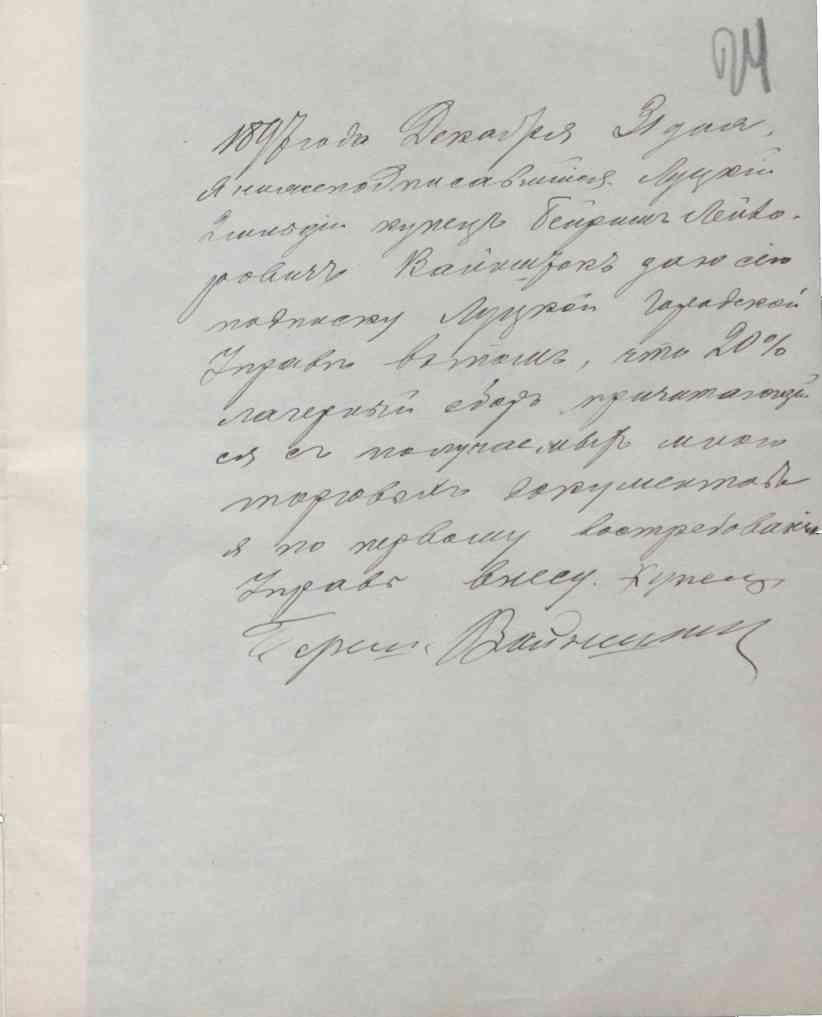 24
1897 года Декабря 31 дня,
я нижеподписавшийся Луцкий
2 гильдіи купецъ Лейбо-
ровичъ Вайнштокъ даю сію
подписку Луцкой Городской
Управѣ въ томъ, что 20%
лагерный сборъ причитающій
ся съ получаемыхъ мною
торговыхъ документовъ
я по первому востребованію
Управѣ внесу. Купецъ